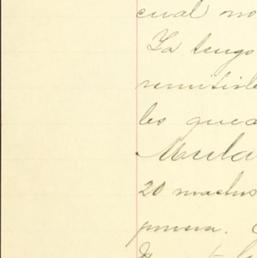 cual no
Ya tengo
remitirle
les que
Mula
20 machos